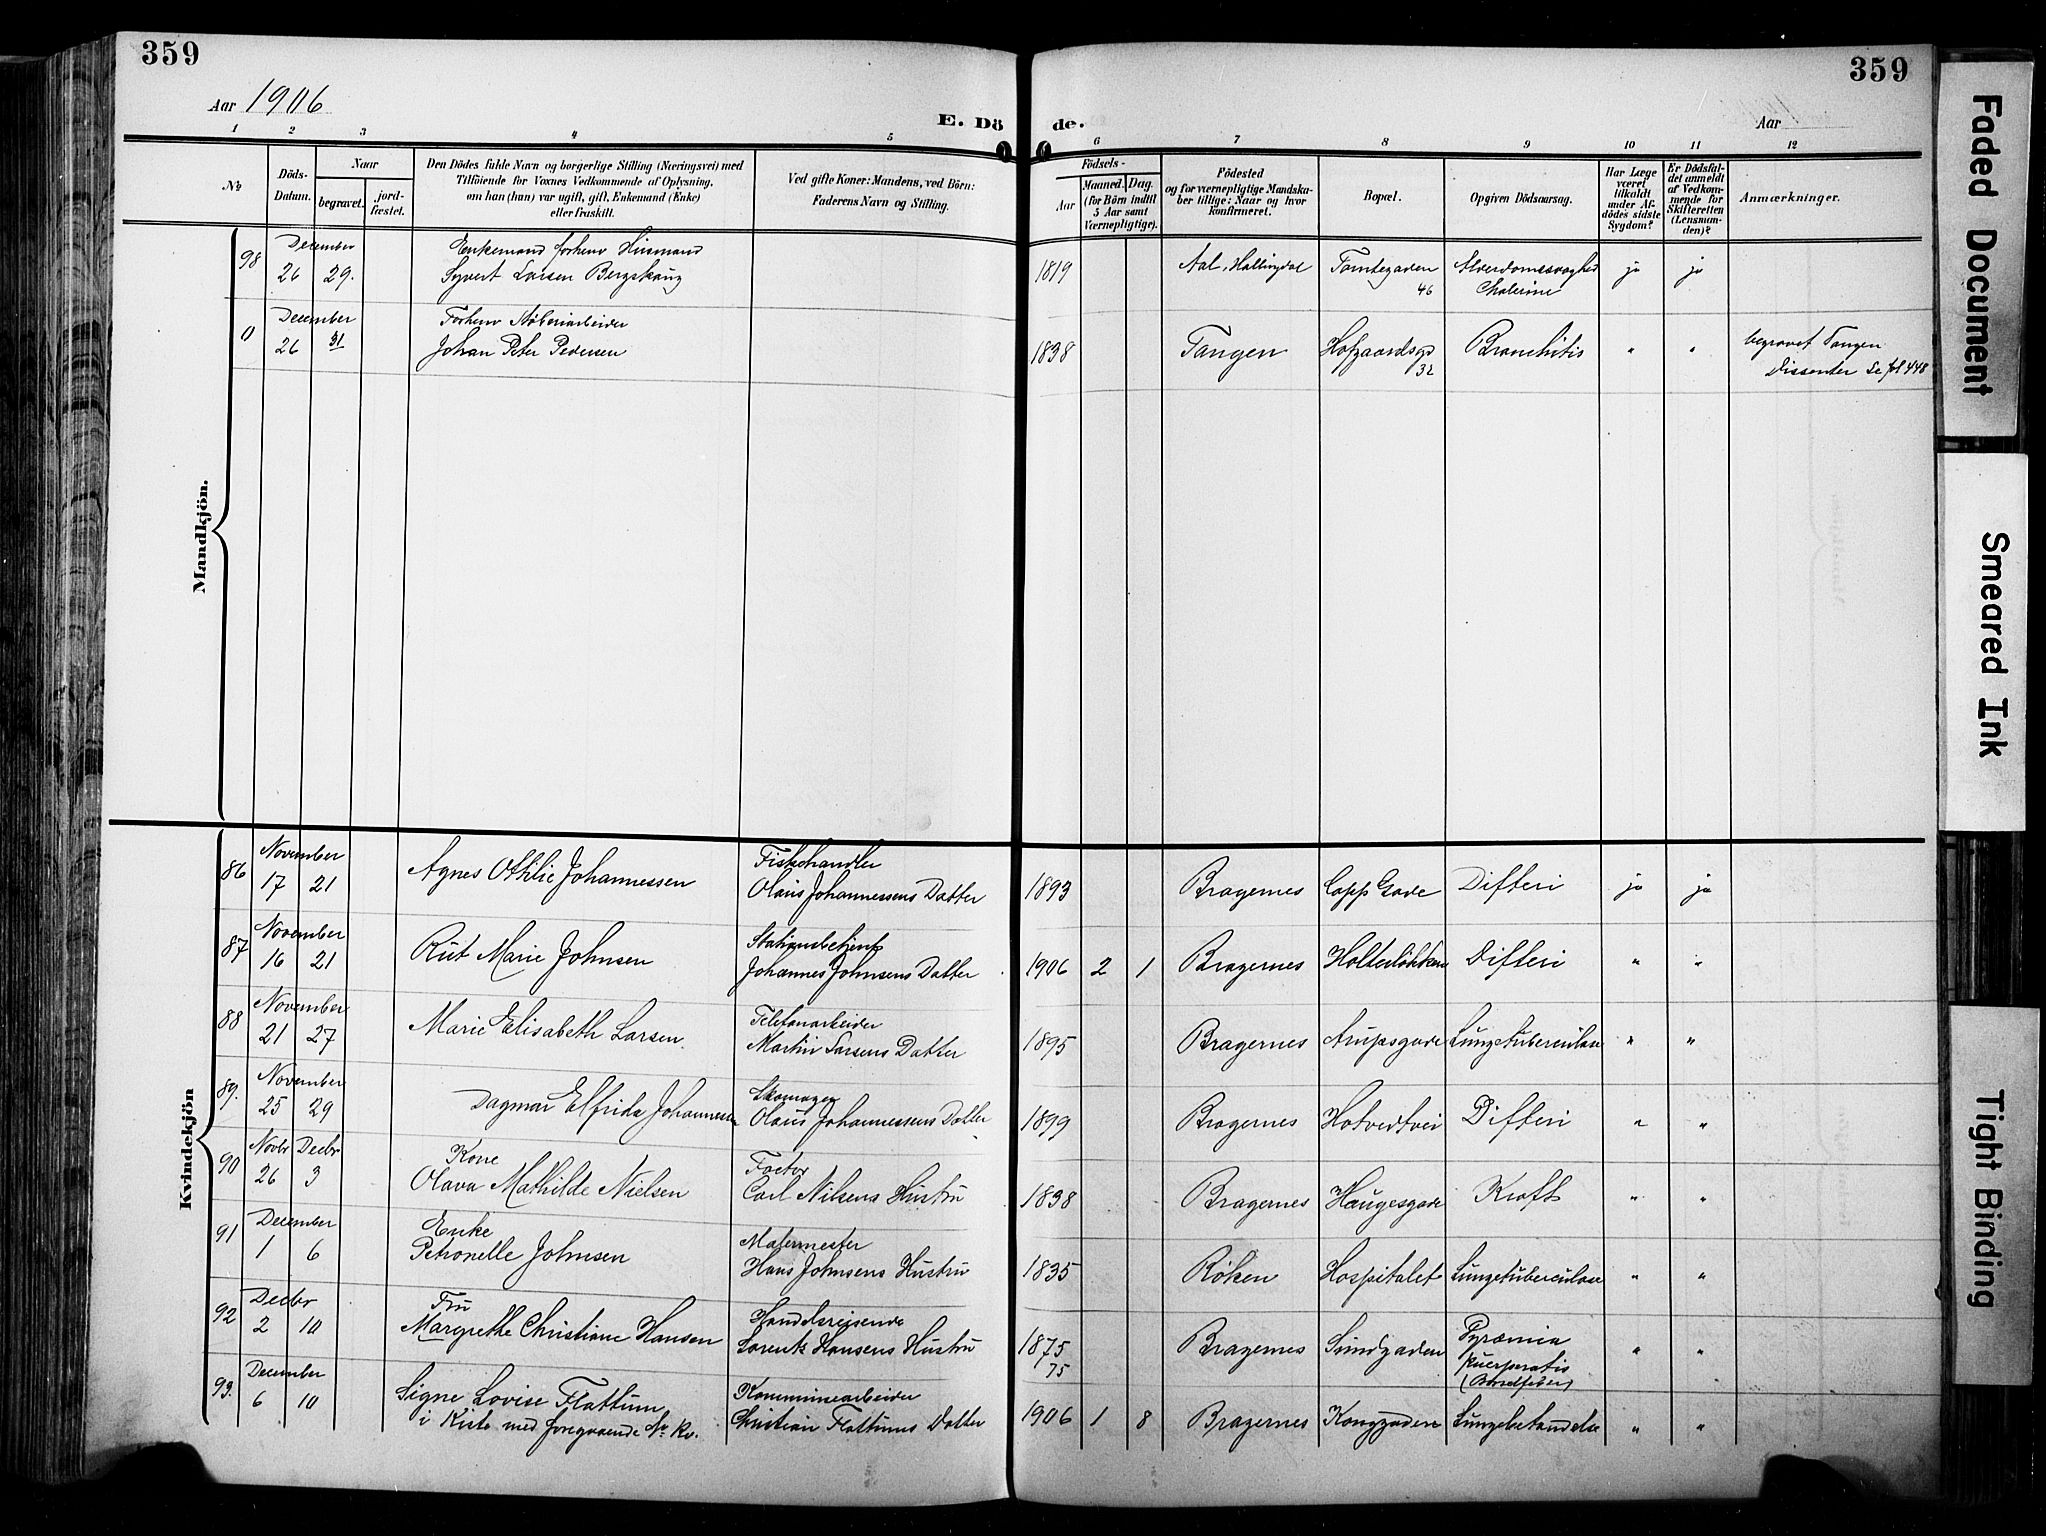 359
359
Aar 1906
E. Dö de.
Aar
1 2 3 4 5 6 7 8 9 10 11 12
№
Döds-Datum.
Naar
begravet.
jord-fæstet.
Den Dödes fulde Navn og borgerlige Stilling (Næringsvei) med
Tilföiende for Voxnes Vedkommende af Oplysning.
om han (hun) var ugift, gift, Enkemand (Enke)
eller fraskilt.
Ved gifte Koner: Mandens, ved Börn:
Faderens Navn og Stilling.
Födsels-
Aar
Maaned. Dag.
(for Börn indtil
5 Aar samt
Værnepligtige).
Födested
og for værnepligtige Mandska-
ber tillige: Naar og hvor
konfirmeret.
Bopæl.
Opgiven Dödsaarsag.
Har Læge
været
tilkaldt
under Af-
dödes sidste
Sygdom?
Er Dödsfal-
det anmeldt
af Vedkom-
mende for
Skifteretten
(Lensman-
den)?
Anmærkninger.
Mandkjön.
98 December 26 29. Enkemand forhenv Husmand
Syvert Larsen Bergskaug 1819 Aal, Hallingdal Tomtegaden 46 Alderdomssvaghed
Cholerine ja ja
0 December 26 31 Forhenv Støberiarbeider
Johan Peter Pedersen 1838 Tangen Hofgaardsgd 32 Bronchitis " " begravet Tangen
Dissenter Se fol 448
Kvindekjön
86 November 17 21 Agnes Othilie Johannessen Fiskehandler
Olaus Johannessens Datter 1893 Bragernes Capp Gade Difteri ja ja
87 November 16 21 Rut Marie Johnsen Stationsbetjent
Johannes Johnsens Datter 1906 2 1 Bragernes Holterløkken Difteri " "
88 November 21 27 Marie Elisabeth Larsen. Telefonarbeider
Martin Larsens Datter 1895 Bragernes Arupsgade Lungetuberculose " "
89. November 25 29 Dagmar Elfrida Johannessen Skomager
Olaus Johannessens Datter 1899 Bragernes Hotvedtvei Difteri " "
90 Novbr 26 Decbr 3 Kone
Olava Mathilde Nielsen Factor
Carl Nilsens Hustru 1838 Bragernes Haugesgade Kræft " "
91 December 1 6 Enke
Petronelle Johnsen Malermester
Hans Johnsens Hustru 1835 Røken Hospitalet Lungetuberculose " "
92 Decbr 2 10 Fru
Margrethe Christiane Hansen Handelsreisende
Lorentz Hansens Hustru 1875
75 Bragernes Sundgaden Pyræmia
puerperalis
(Barselfeber) " "
93. December 6 10 Signe Lovise Flattum
i Kiste med foregaaende № Kv. Kommunearbeider
Christian Flattums Datter 1906 1 8 Bragernes Konggaden Lungebetændelse " "
Faded Document
Smeared Ink
Tight Binding